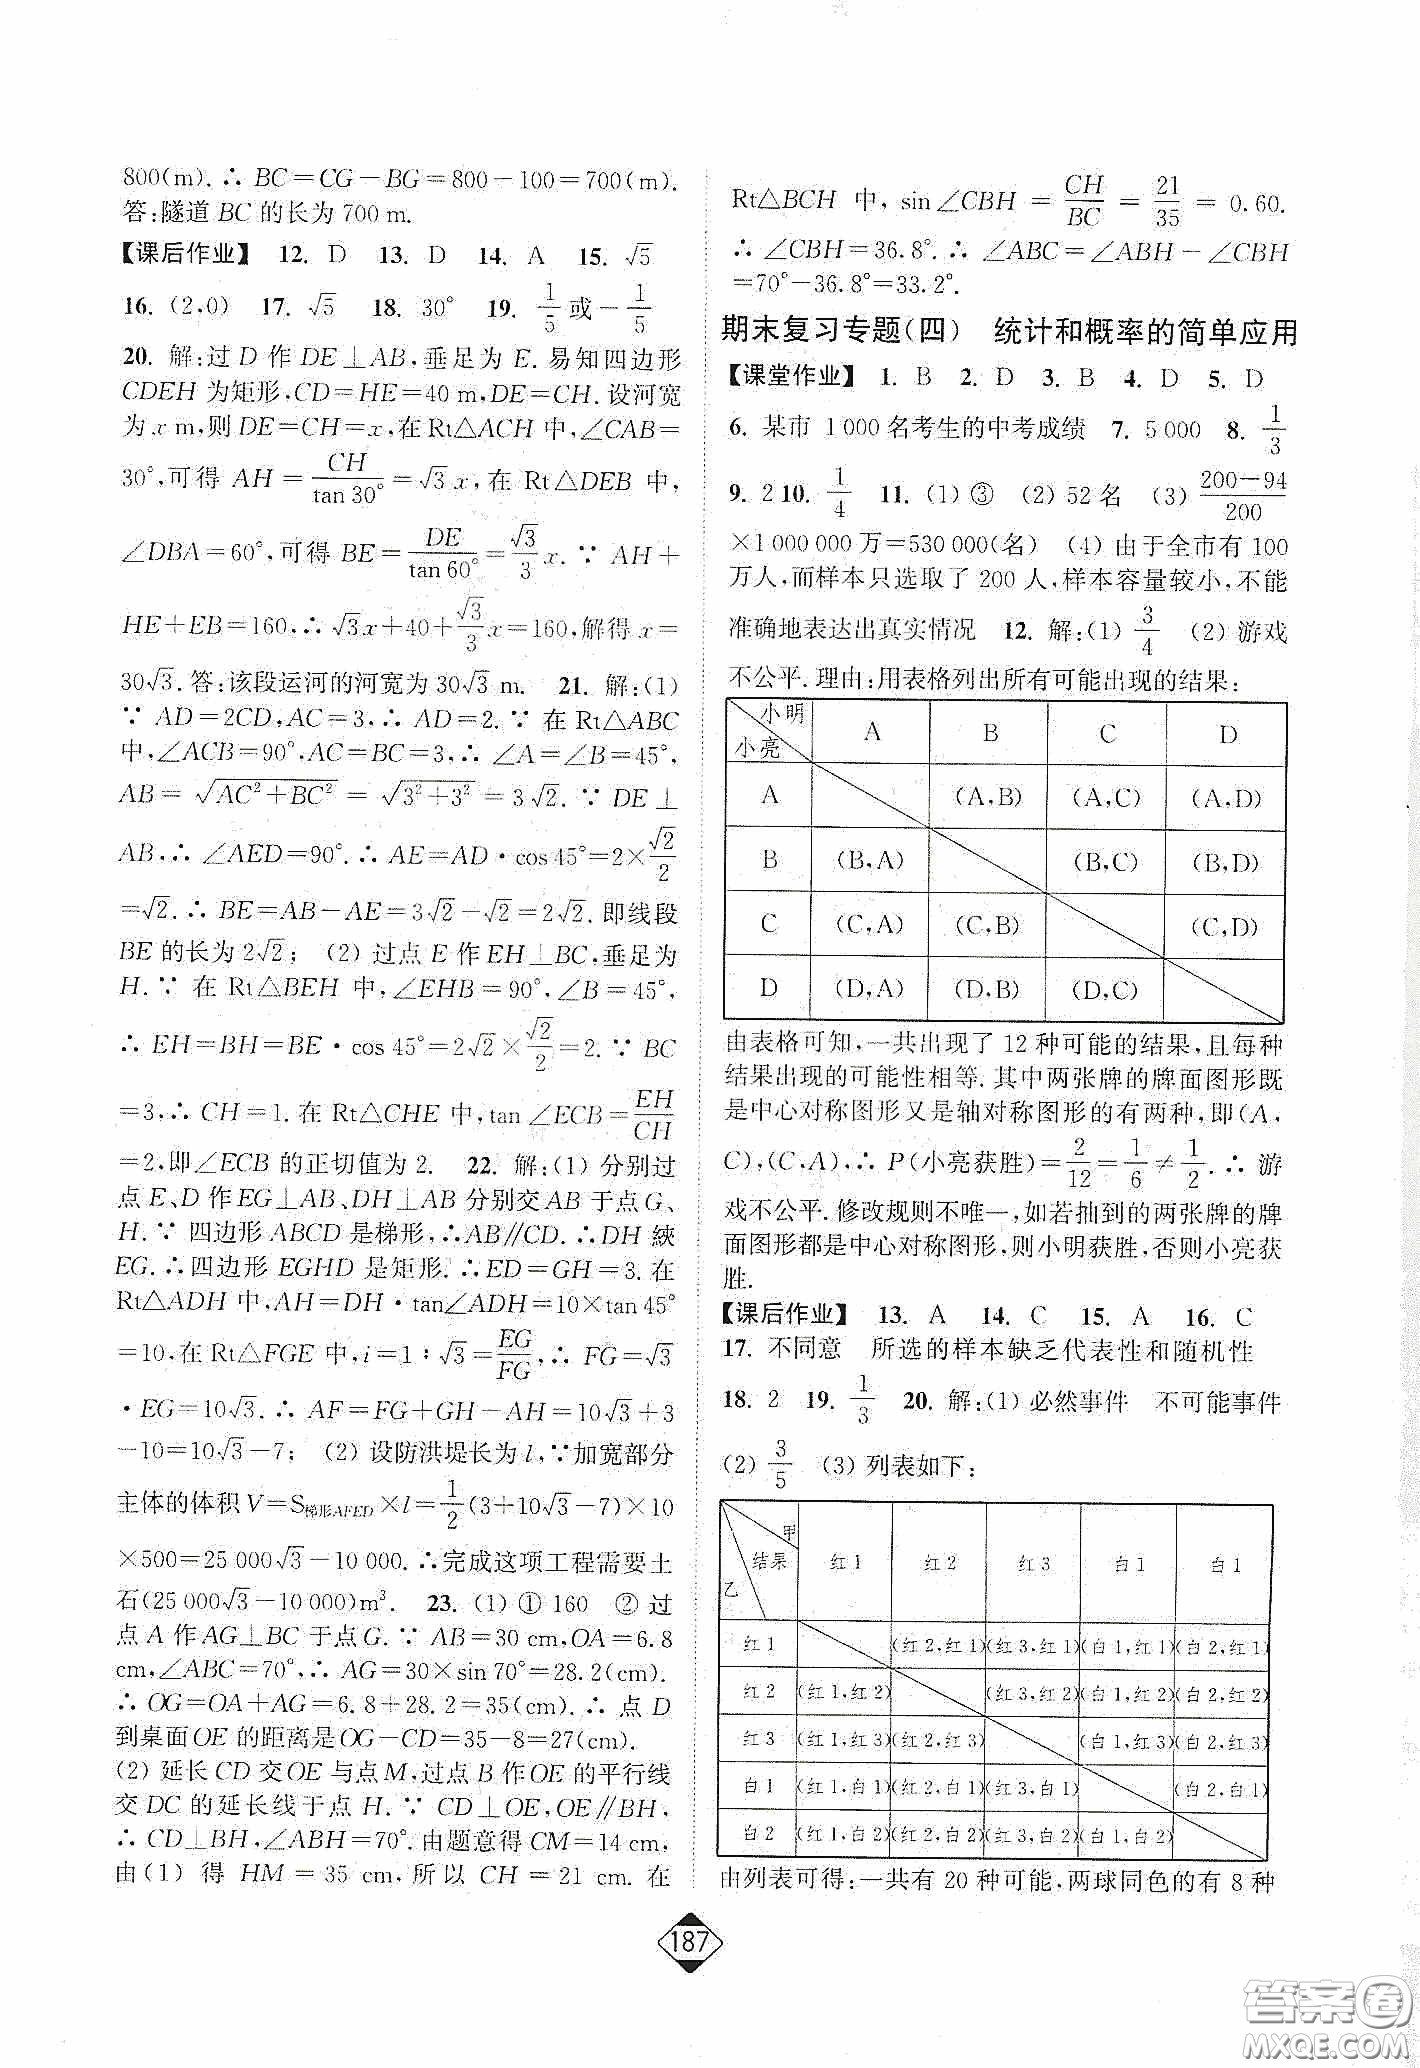 800(m). ∴ BC=CG-BG=800-100=700(m).
答:隧道 BC 的长为 700 m.
【课后作业】 12. D 13. D 14. A 15. √5
16. (2,0) 17. √5 18. 30° 19. 1/5 或 -1/5
20. 解:过 D 作 DE⊥AB,垂足为 E. 易知四边形
CDEH 为矩形,CD=HE=40 m,DE=CH. 设河宽
为 x m,则 DE=CH=x,在 Rt△ACH 中,∠CAB=
30°,可得 AH=CH/tan30°=√3x,在 Rt△DEB 中,
∠DBA=60°,可得 BE=DE/tan60°=√3/3 x. ∵ AH+
HE+EB=160,∴ √3x+40+√3/3 x=160,解得 x=
30√3. 答:该段运河的河宽为 30√3 m. 21. 解:(1)
∵ AD=2CD,AC=3,∴ AD=2. ∵ 在 Rt△ABC
中,∠ACB=90°,AC=BC=3,∴ ∠A=∠B=45°,
AB=√(AC²+BC²)=√(3²+3²)=3√2. ∵ DE⊥
AB,∴ ∠AED=90°. ∴ AE=AD·cos45°=2×√2/2
=√2. ∴ BE=AB-AE=3√2-√2=2√2. 即线段
BE 的长为 2√2; (2) 过点 E 作 EH⊥BC,垂足为
H. ∵ 在 Rt△BEH 中,∠EHB=90°,∠B=45°,
∴ EH=BH=BE·cos45°=2√2×√2/2=2. ∵ BC
=3,∴ CH=1. 在 Rt△CHE 中,tan∠ECB=EH/CH
=2,即∠ECB 的正切值为 2. 22. 解:(1) 分别过
点 E、D 作 EG⊥AB、DH⊥AB 分别交 AB 于点 G、
H. ∵ 四边形 ABCD 是梯形,∴AB∥CD. ∴DH 綊
EG. ∴四边形 EGHD 是矩形. ∴ED=GH=3. 在
Rt△ADH 中,AH=DH·tan∠ADH=10×tan45°
=10,在 Rt△FGE 中,i=1∶√3=EG/FG,∴ FG=√3
·EG=10√3. ∴ AF=FG+GH-AH=10√3+3
-10=10√3-7; (2) 设防洪堤长为 l,∵加宽部分
主体的体积 V=S梯形AFED×l=1/2(3+10√3-7)×10
×500=25 000√3-10 000. ∴完成这项工程需要土
石(25 000√3-10 000)m³. 23. (1) ① 160 ② 过
点 A 作 AG⊥BC 于点 G. ∵ AB=30 cm,OA=6.8
cm,∠ABC=70°,∴ AG=30×sin70°=28.2(cm).
∴ OG=OA+AG=6.8+28.2=35(cm). ∴ 点 D
到桌面 OE 的距离是 OG-CD=35-8=27(cm).
(2) 延长 CD 交 OE 与点 M,过点 B 作 OE 的平行线
交 DC 的延长线于点 H. ∵ CD⊥OE,OE∥BH,
∴ CD⊥BH,∠ABH=70°. 由题意得 CM=14 cm,
由(1) 得 HM=35 cm,所以 CH=21 cm. 在
Rt△BCH 中,sin∠CBH=CH/BC=21/35=0.60.
∴ ∠CBH=36.8°. ∴ ∠ABC=∠ABH-∠CBH
=70°-36.8°=33.2°.
期末复习专题(四) 统计和概率的简单应用
【课堂作业】 1. B 2. D 3. B 4. D 5. D
6. 某市 1 000 名考生的中考成绩 7. 5 000 8. 1/3
9. 2 10. 1/4 11. (1) ③ (2) 52 名 (3) (200-94)/200
×1 000 000 万=530 000(名) (4) 由于全市有 100
万人,而样本只选取了 200 人,样本容量较小,不能
准确地表达出真实情况 12. 解:(1) 3/4 (2) 游戏
不公平. 理由:用表格列出所有可能出现的结果:
小明 小亮 A B C D
A (A,B) (A,C) (A,D)
B (B,A) (B,C) (B,D)
C (C,A) (C,B) (C,D)
D (D,A) (D,B) (D,C)
由表格可知,一共出现了 12 种可能的结果,且每种
结果出现的可能性相等. 其中两张牌的牌面图形既
是中心对称图形又是轴对称图形的有两种,即(A,
C),(C,A),∴ P(小亮获胜)=2/12=1/6≠1/2. ∴ 游
戏不公平. 修改规则不唯一,如若抽到的两张牌的牌
面图形都是中心对称图形,则小明获胜,否则小亮获
胜.
【课后作业】 13. A 14. C 15. A 16. C
17. 不同意 所选的样本缺乏代表性和随机性
18. 2 19. 1/3 20. 解:(1) 必然事件 不可能事件
(2) 3/5 (3) 列表如下:
甲 结果 乙 红1 红2 红3 白1 白1
红1 (红2,红1) (红3,红1) (白1,红1) (白2,红1)
红2 (红1,红2) (红3,红2) (白1,红2) (白2,红2)
红3 (红1,红3) (红2,红3) (白1,红3) (白2,红3)
白1 (红1,白1) (红2,白1) (红3,白1) (白2,白1)
白2 (红1,白2) (红2,白2) (红3,白2) (白1,白2)
由列表可得:一共有 20 种可能,两球同色的有 8 种
187
答案卷
MXQE.COM